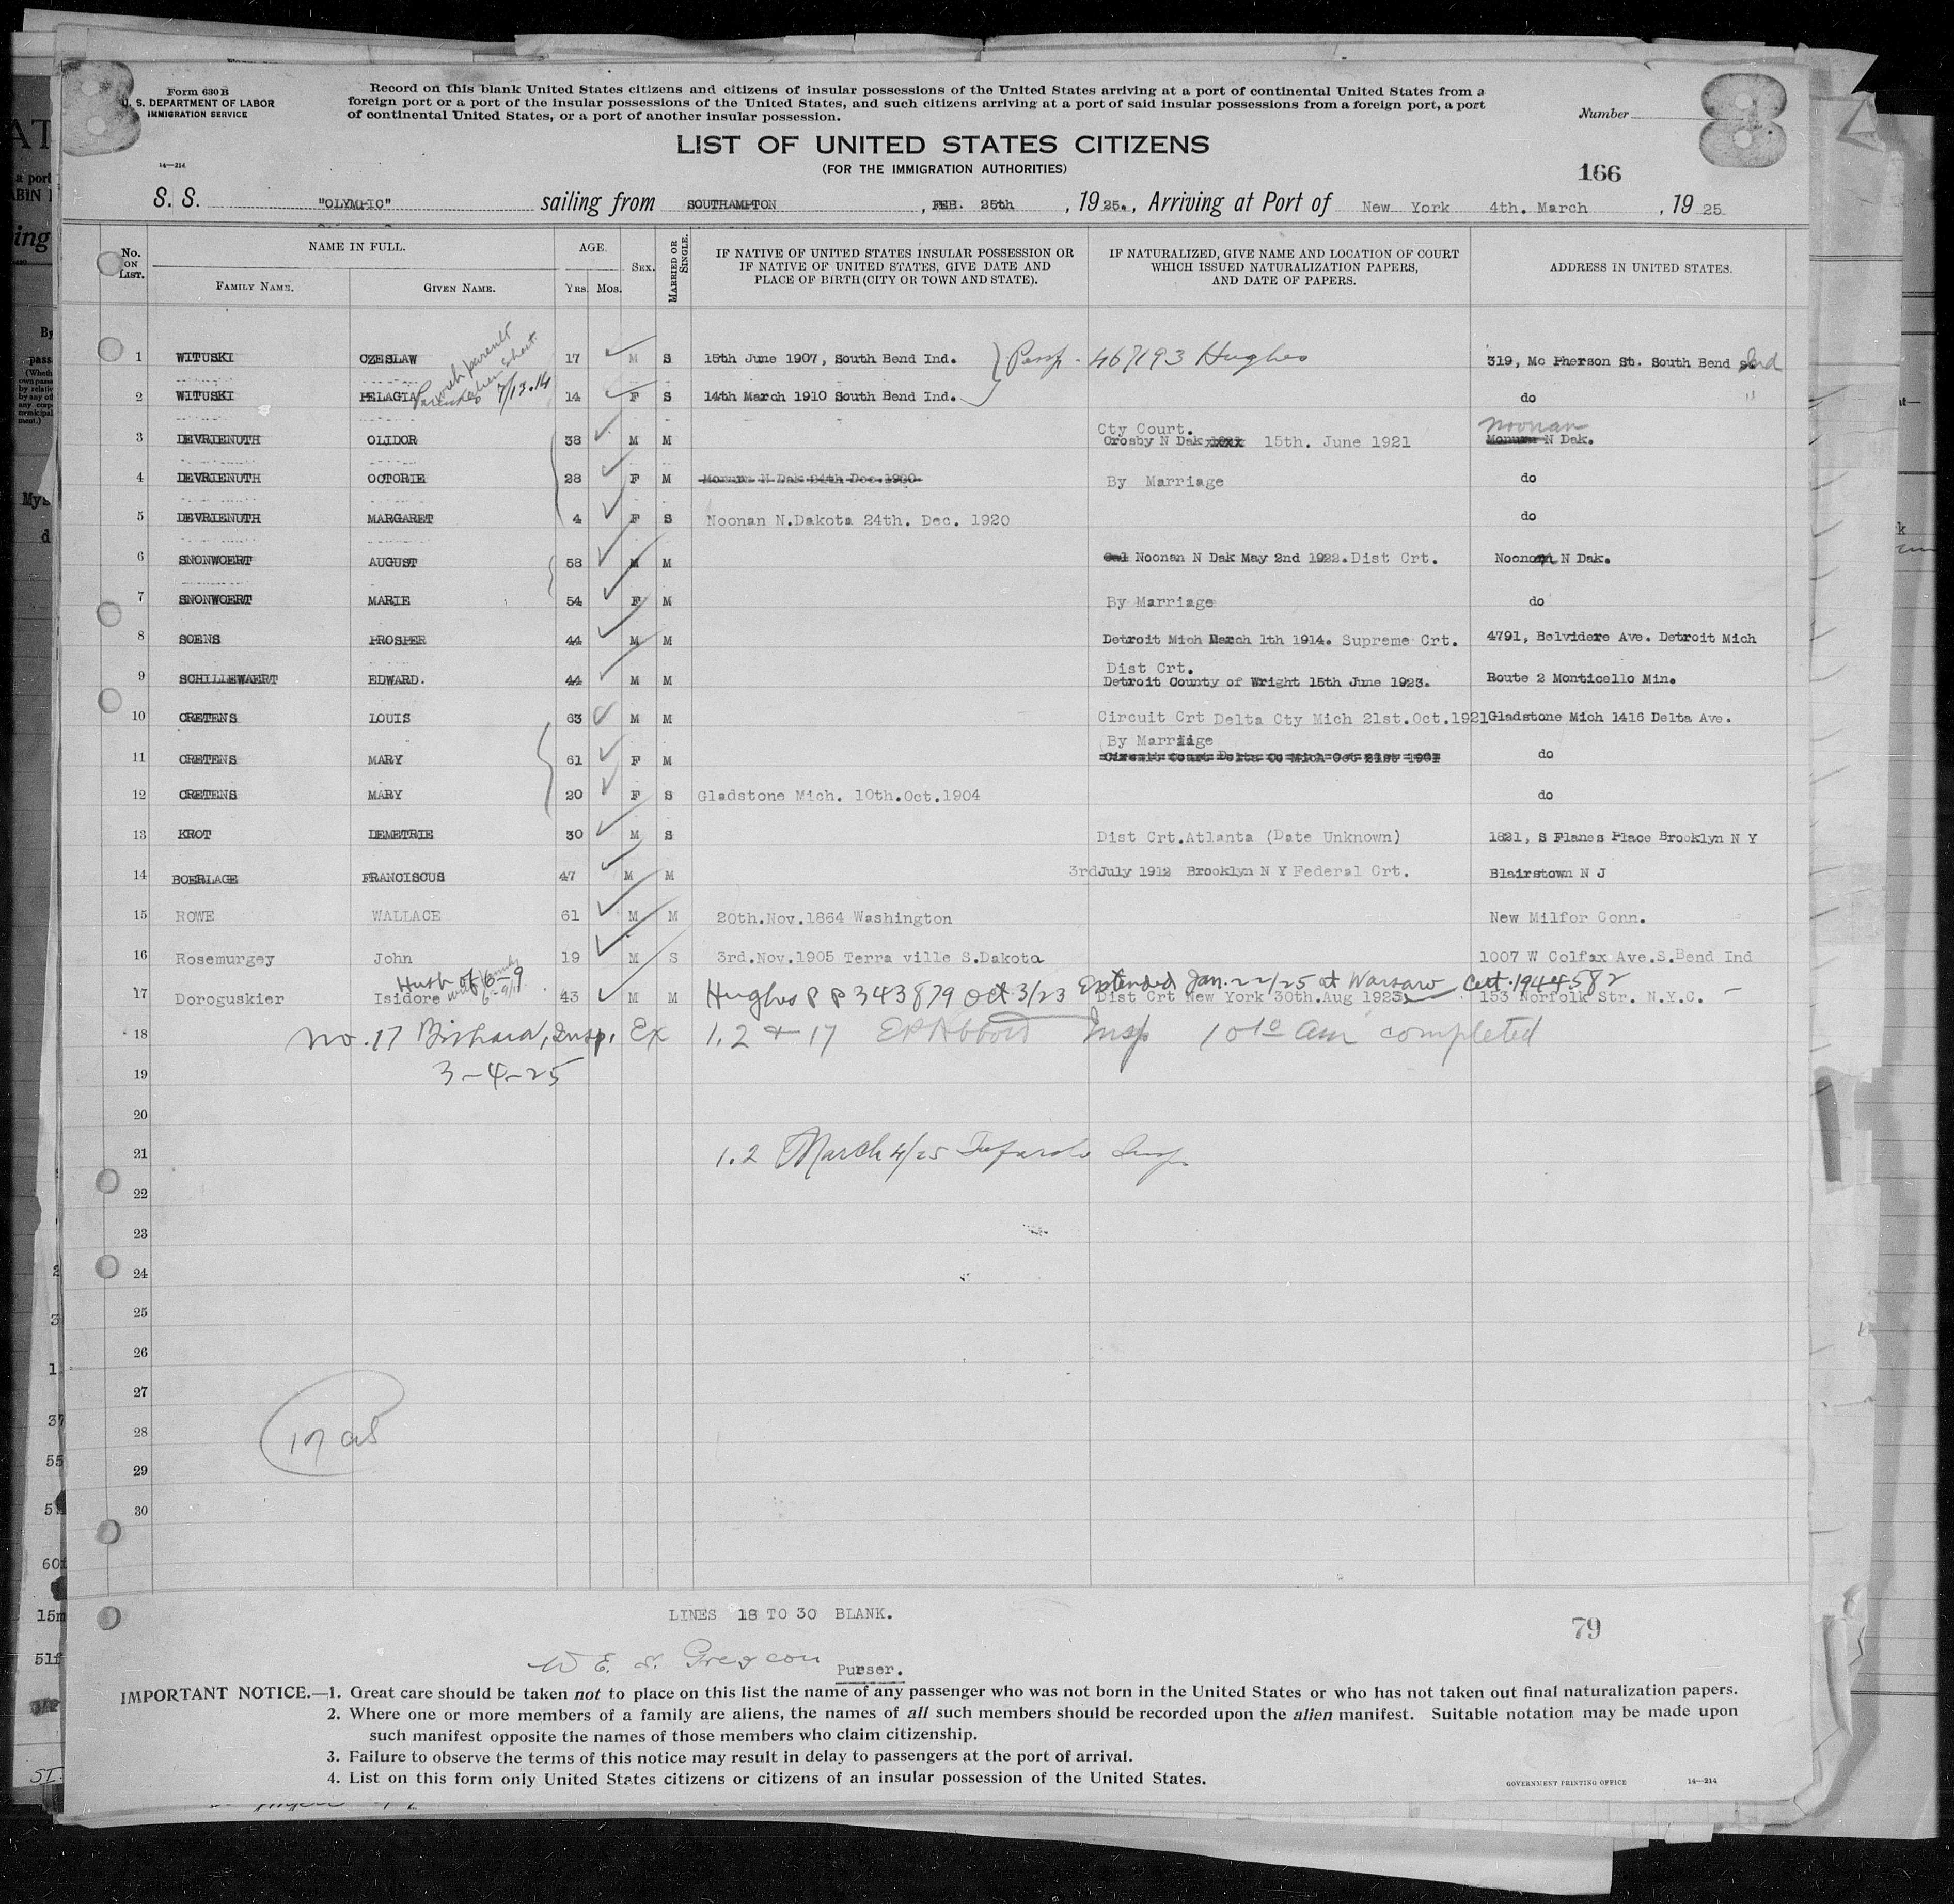 8
Form 630 B
U. S. DEPARTMENT OF LABOR
IMMIGRATION SERVICE
14—214
Record on this blank United States citizens and citizens of insular possessions of the United States arriving at a port of continental United States from a
foreign port or a port of the insular possessions of the United States, and such citizens arriving at a port of said insular possessions from a foreign port, a port
of continental United States, or a port of another insular possession.
Number
8
LIST OF UNITED STATES CITIZENS
(FOR THE IMMIGRATION AUTHORITIES)
166
S. S. "OLYMPIC" sailing from SOUTHAMPTON, FEB. 25th, 1925., Arriving at Port of New York 4th. March, 1925
No. ON LIST. NAME IN FULL. FAMILY NAME. GIVEN NAME. AGE. Yrs. Mos. SEX. MARRIED OR SINGLE. IF NATIVE OF UNITED STATES INSULAR POSSESSION OR IF NATIVE OF UNITED STATES, GIVE DATE AND PLACE OF BIRTH (CITY OR TOWN AND STATE). IF NATURALIZED, GIVE NAME AND LOCATION OF COURT WHICH ISSUED NATURALIZATION PAPERS, AND DATE OF PAPERS. ADDRESS IN UNITED STATES.
with parents
7/13.14
1 WITUSKI CZESLAW 17 M S 15th June 1907, South Bend Ind. 467193 Hughes 319, Mc Pherson St. South Bend Ind
2 WITUSKI PELAGIA 14 F S 14th March 1910 South Bend Ind. do "
Cty Court. Noonan
3 DEVRIENUTH OLIDOR 38 M M Crosby N Dak xxxx 15th. June 1921 N Dak.
4 DEVRIENUTH OCTORIE 28 F M Monurn N Dak 24th Dec.1920 By Marriage do
5 DEVRIENUTH MARGARET 4 F S Noonan N.Dakota 24th. Dec. 1920 do
6 SNONWOERT AUGUST 58 M M Noonan N Dak May 2nd 1922. Dist Crt. Noonan N Dak.
7 SNONWOERT MARIE 54 F M By Marriage do
8 SOENS PROSPER 44 M M Detroit Mich March 1th 1914. Supreme Crt. 4791, Belvidere Ave. Detroit Mich
Dist Crt.
9 SCHILLEWAERT EDWARD. 44 M M Detroit County of Wright 15th June 1923. Route 2 Monticello Min.
10 CRETENS LOUIS 63 M M Circuit Crt Delta Cty Mich 21st.Oct.1921 Gladstone Mich 1416 Delta Ave.
By Marriige
11 CRETENS MARY 61 F M Circuit Court Delta Co Mich Oct 21st 1901 do
12 CRETENS MARY 20 F S Gladstone Mich. 10th.Oct.1904 do
13 KROT DEMETRIE 30 M S Dist Crt.Atlanta (Date Unknown) 1821, S Flanes Place Brooklyn N Y
14 BOERLAGE FRANCISCUS 47 M M 3rdJuly 1912 Brooklyn N Y Federal Crt. Blairstown N J
15 ROWE WALLACE 61 M M 20th.Nov.1864 Washington New Milfor Conn.
16 Rosemurgey John 19 M S 3rd.Nov.1905 Terra ville S.Dakota 1007 W Colfax Ave.S.Bend Ind
Husb of 6-9 Hughes PP 343879 Oct 3/23 Extended Jan. 22/25 at Warsaw Cert. 1944582
17 Doroguskier Isidore 43 M M Dist Crt New York 30th.Aug 1923 153 Norfolk Str. N.Y.C. –
18 No. 17 Insp. Ex 1.2 + 17 Insp 10 10 am completed
19 3-4-25
20
21 1.2 March 4/25 Insp.
22
23
24
25
26
27
28 17
29
30
LINES 18 TO 30 BLANK.
79
Purser.
IMPORTANT NOTICE.—1. Great care should be taken not to place on this list the name of any passenger who was not born in the United States or who has not taken out final naturalization papers.
2. Where one or more members of a family are aliens, the names of all such members should be recorded upon the alien manifest. Suitable notation may be made upon
such manifest opposite the names of those members who claim citizenship.
3. Failure to observe the terms of this notice may result in delay to passengers at the port of arrival.
4. List on this form only United States citizens or citizens of an insular possession of the United States.
GOVERNMENT PRINTING OFFICE 14—214